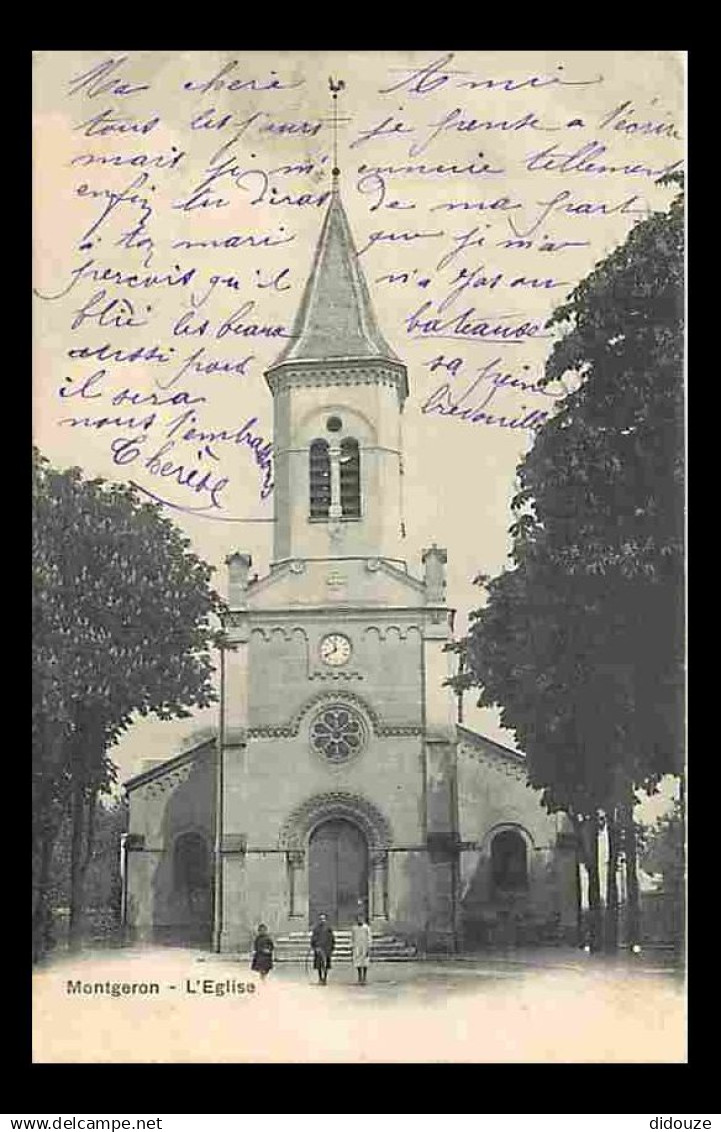 Ma cherie Amie
tous les jours je pense a t'écrire
mais je m'ennuie tellement
enfin tu diras de ma part
à ton mari que je m'a
perçois qu'il n'a pas ou
blié les beaux bateaux
aussi pour sa peine
il sera bredouille
nous t'embrassons
Thérèse
Montgeron - L'Eglise
delcampe.net
didouze